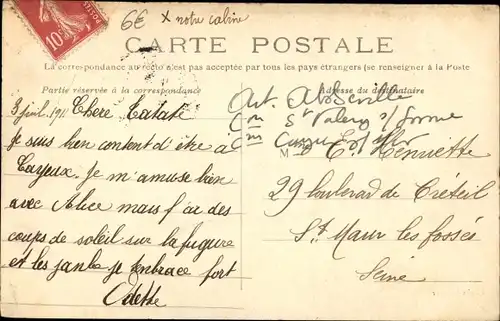 6€ x notre cabine
10
CARTE POSTALE
La correspondance au recto n'est pas acceptée par tous les pays étrangers (se renseigner à la Poste
Partie réservée à la correspondance
Adresse du destinataire
3 juil. 1911 Chère Tatate
je suis bien content d'être à
Cayeux. Je m'amuse bien
avec Alice mais j'ai des
coups de soleil sur la figure
et les jambe je embrace fort
Odette
Art. Abbeville
Con St Valery s/ Somme
Cayeux s/ Mer
M Henriette
29 boulevard de Créteil
St Maur les fossés
Seine